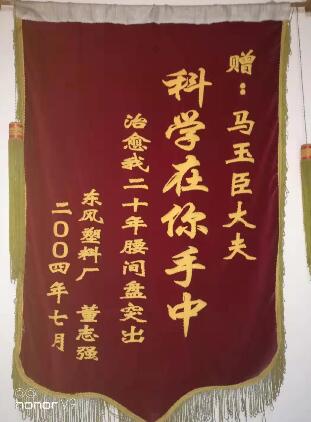 赠：马玉臣大夫
科学在你手中
治愈我二十年腰间盘突出
东风塑料厂 董志强
二〇〇四年七月
honor V9